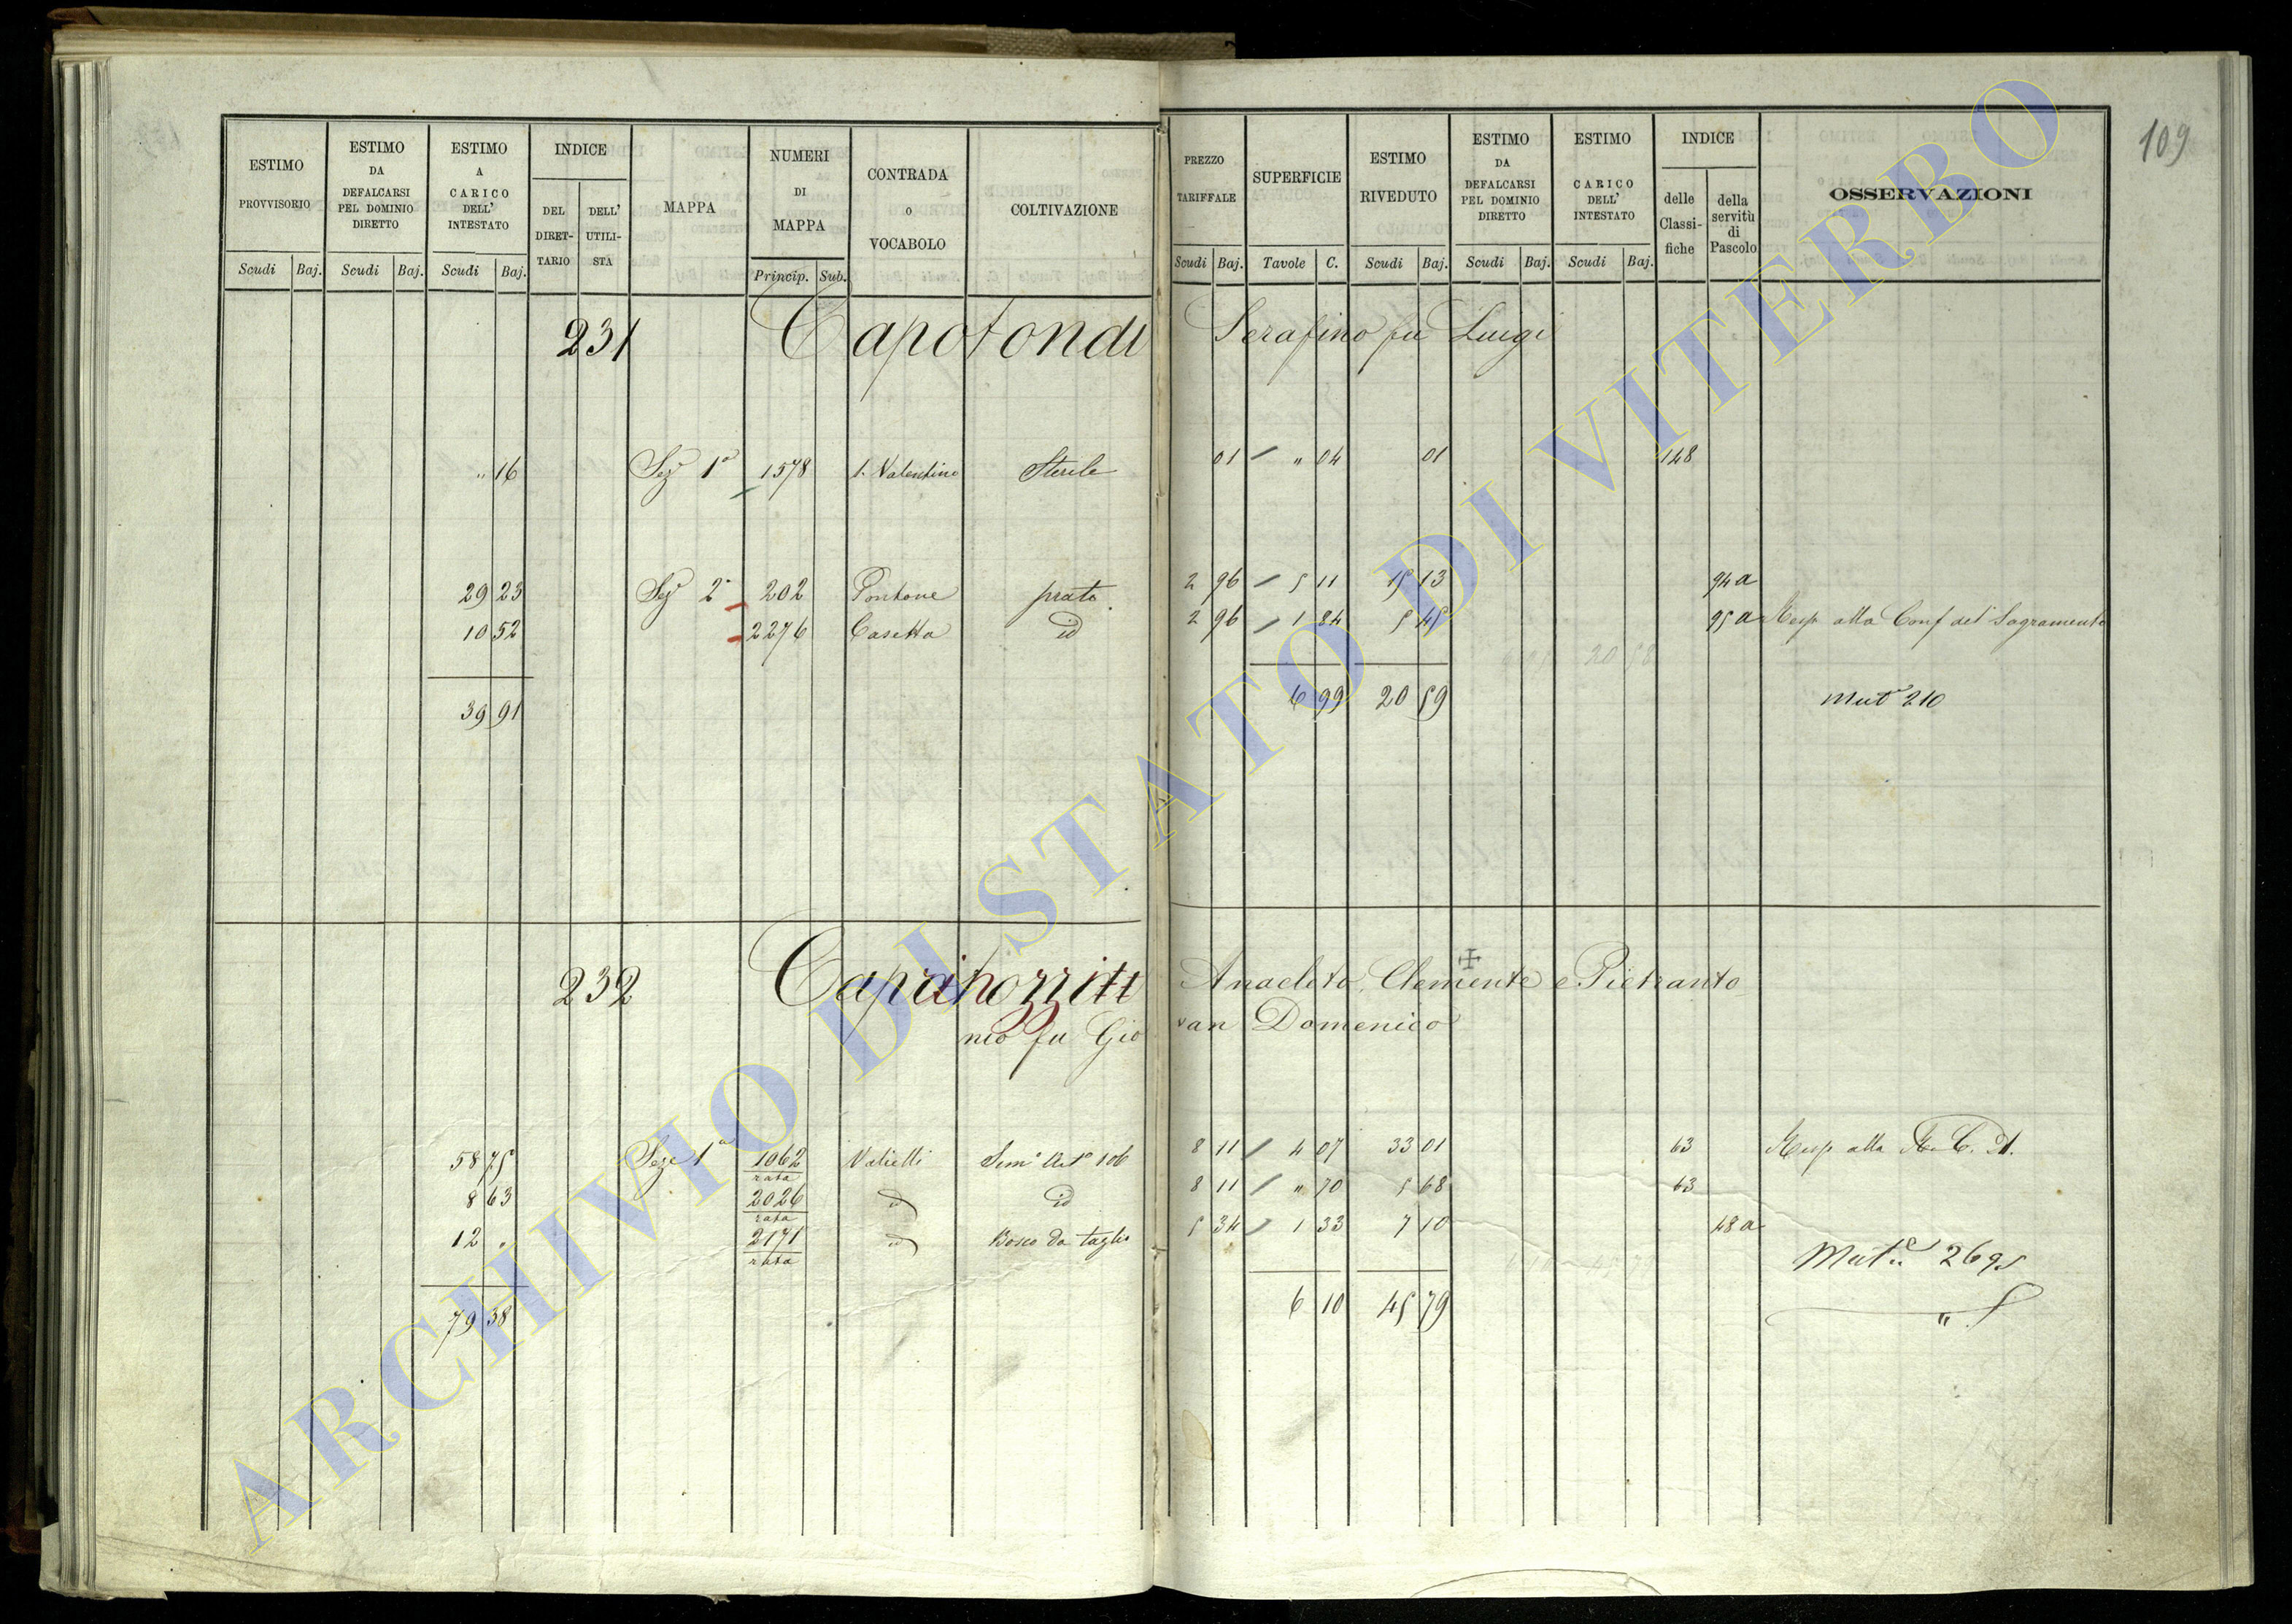 109
ESTIMO PROVVISORIO | ESTIMO DA DEFALCARSI PEL DOMINIO DIRETTO | ESTIMO A CARICO DELL' INTESTATO | INDICE DEL DIRETTARIO | DELL' UTILISTA | MAPPA | NUMERI DI MAPPA | CONTRADA O VOCABOLO | COLTIVAZIONE | PREZZO TARIFFALE | SUPERFICIE | ESTIMO RIVEDUTO | ESTIMO DA DEFALCARSI PEL DOMINIO DIRETTO | ESTIMO CARICO DELL' INTESTATO | INDICE delle Classifiche | della servitù di Pascolo | OSSERVAZIONI
Scudi Baj. Scudi Baj. Scudi Baj. Princip. Sub. Scudi Baj. Tavole C. Scudi Baj. Scudi Baj. Scudi Baj.
231 Capotondi Serafino fu Luigi
" 16 Sez 1a 1578 S. Valentino Sterile 01 " 04 01 148
29 23 Sez 2a 202 Pontone prato 2 96 5 11 15 13 94 a
10 52 2276 Casetta id 2 96 1 84 5 45 95 a Resp alla Conf del Sagramento
39 91 6 99 20 59 Mut 210
232 Anacleto, Clemente e Pietranto
nio fu Giovan Domenico
58 75 Seze 1a 1062 rata Valielli Semo Arto 106 8 11 4 07 33 01 63 Resp alla R. C. A.
8 63 2026 rata id id 8 11 " 70 5 68 63
12 " 2171 rata id Bosco da taglio 5 34 1 33 7 10 48 a
Mut. 2695
79 38 6 10 45 79
ARCHIVIO DI STATO DI VITERBO